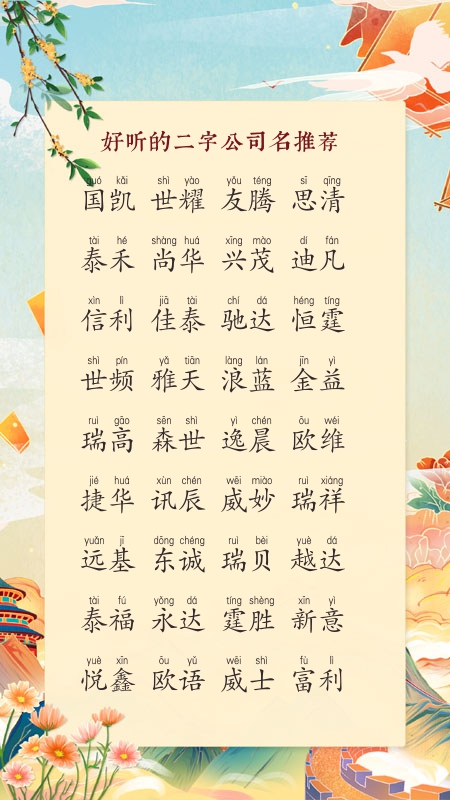 好听的二字公司名推荐
guó kǎi shì yào yǒu téng sī qīng
国凯 世耀 友腾 思清
tài hé shàng huá xīng mào dí fán
泰禾 尚华 兴茂 迪凡
xìn lì jiā tài chí dá héng tíng
信利 佳泰 驰达 恒霆
shì pín yǎ tiān làng lán jīn yì
世频 雅天 浪蓝 金益
ruì gāo sēn shì yì chén ōu wéi
瑞高 森世 逸晨 欧维
jié huá xùn chén wēi miào ruì xiáng
捷华 讯辰 威妙 瑞祥
yuǎn jī dōng chéng ruì bèi yuè dá
远基 东诚 瑞贝 越达
tài fú yǒng dá tíng shèng xīn yì
泰福 永达 霆胜 新意
yuè xīn ōu yǔ wēi shì fù lì
悦鑫 欧语 威士 富利